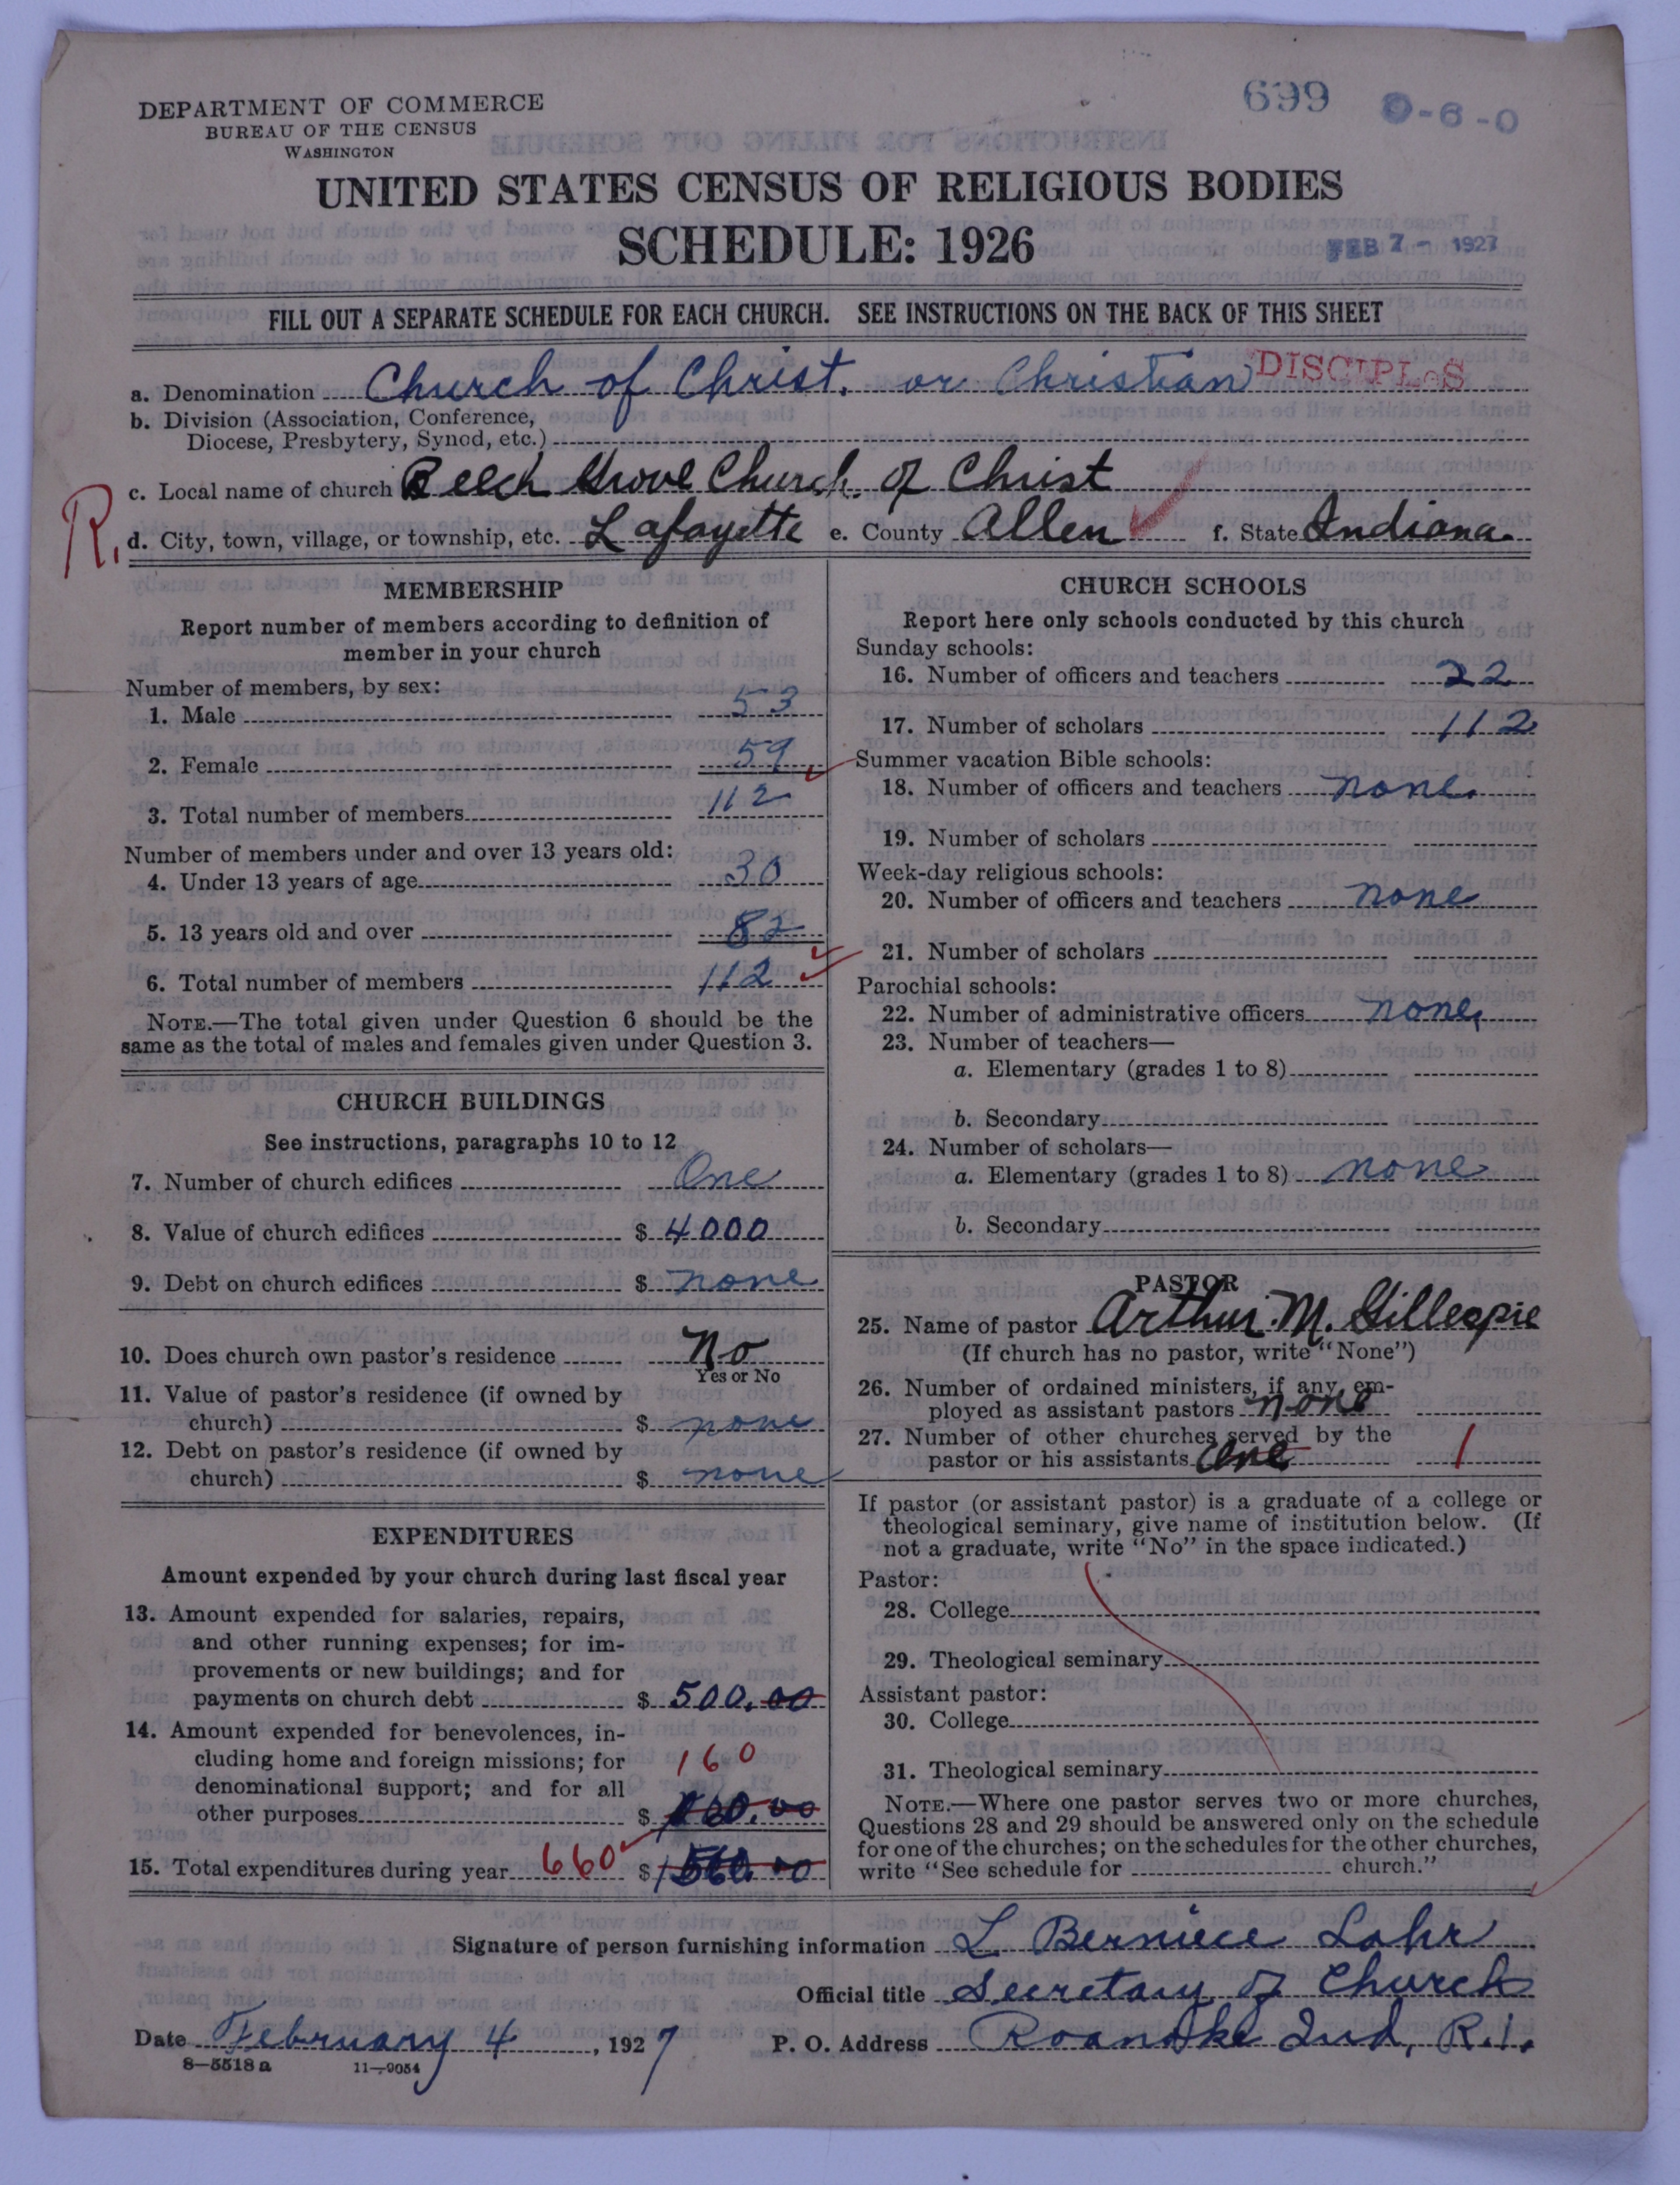 DEPARTMENT OF COMMERCE
BUREAU OF THE CENSUS
WASHINGTON
699 0-6-0
UNITED STATES CENSUS OF RELIGIOUS BODIES
SCHEDULE: 1926
FEB 7 - 1927
FILL OUT A SEPARATE SCHEDULE FOR EACH CHURCH. SEE INSTRUCTIONS ON THE BACK OF THIS SHEET
a. Denomination Church of Christ. or Christian DISCIPLES
b. Division (Association, Conference,
Diocese, Presbytery, Synod, etc.)
c. Local name of church Beech Grove Church of Christ
R. d. City, town, village, or township, etc. Lafayette e. County Allen f. State Indiana.
MEMBERSHIP
Report number of members according to definition of
member in your church
Number of members, by sex:
1. Male 53
2. Female 59
3. Total number of members 112
Number of members under and over 13 years old:
4. Under 13 years of age 30
5. 13 years old and over 82
6. Total number of members 112
NOTE.—The total given under Question 6 should be the
same as the total of males and females given under Question 3.
CHURCH BUILDINGS
See instructions, paragraphs 10 to 12
7. Number of church edifices One
8. Value of church edifices $ 4000
9. Debt on church edifices $ none
10. Does church own pastor's residence No
Yes or No
11. Value of pastor's residence (if owned by
church) $ none
12. Debt on pastor's residence (if owned by
church) $ none
EXPENDITURES
Amount expended by your church during last fiscal year
13. Amount expended for salaries, repairs,
and other running expenses; for im-
provements or new buildings; and for
payments on church debt $ 500.00
14. Amount expended for benevolences, in-
cluding home and foreign missions; for 160
denominational support; and for all
other purposes $
15. Total expenditures during year 660 $
CHURCH SCHOOLS
Report here only schools conducted by this church
Sunday schools:
16. Number of officers and teachers 22
17. Number of scholars 112
Summer vacation Bible schools:
18. Number of officers and teachers none.
19. Number of scholars
Week-day religious schools:
20. Number of officers and teachers none
21. Number of scholars
Parochial schools:
22. Number of administrative officers none.
23. Number of teachers—
a. Elementary (grades 1 to 8)
b. Secondary
24. Number of scholars—
a. Elementary (grades 1 to 8) none
b. Secondary
PASTOR
25. Name of pastor Arthur M. Gillespie
(If church has no pastor, write "None")
26. Number of ordained ministers, if any, em-
ployed as assistant pastors none
27. Number of other churches served by the
pastor or his assistants One 1
If pastor (or assistant pastor) is a graduate of a college or
theological seminary, give name of institution below. (If
not a graduate, write "No" in the space indicated.)
Pastor:
28. College
29. Theological seminary
Assistant pastor:
30. College
31. Theological seminary
NOTE.—Where one pastor serves two or more churches,
Questions 28 and 29 should be answered only on the schedule
for one of the churches; on the schedules for the other churches,
write "See schedule for church."
Signature of person furnishing information L. Berniece Lahr
Official title Secretary of Church
Date February 4, 1927 P. O. Address Roanoke Ind, R.1.
8—5518 a 11—9054